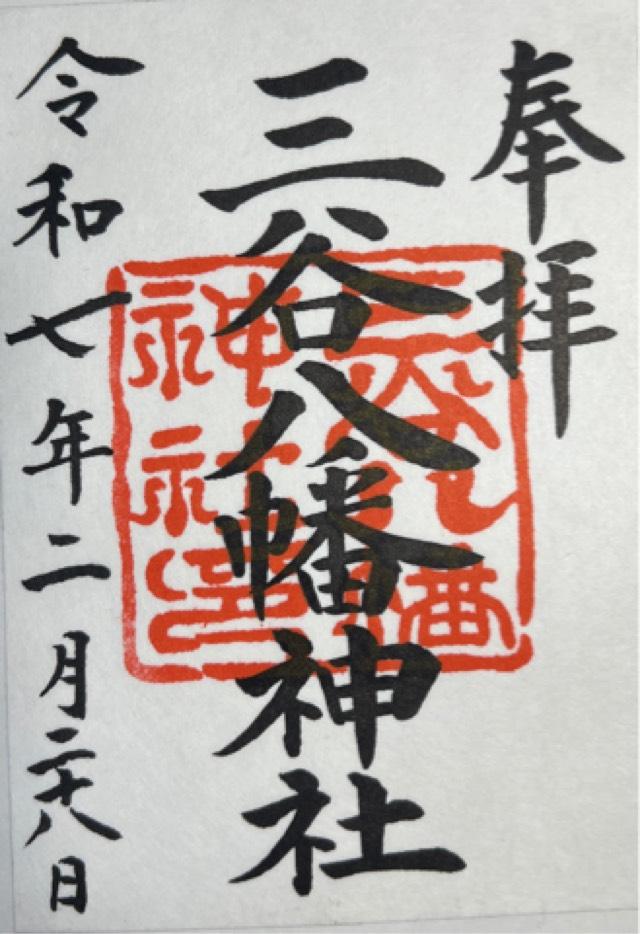 奉拝
三谷八幡神社
令和七年二月二十八日
三谷八幡
神社印